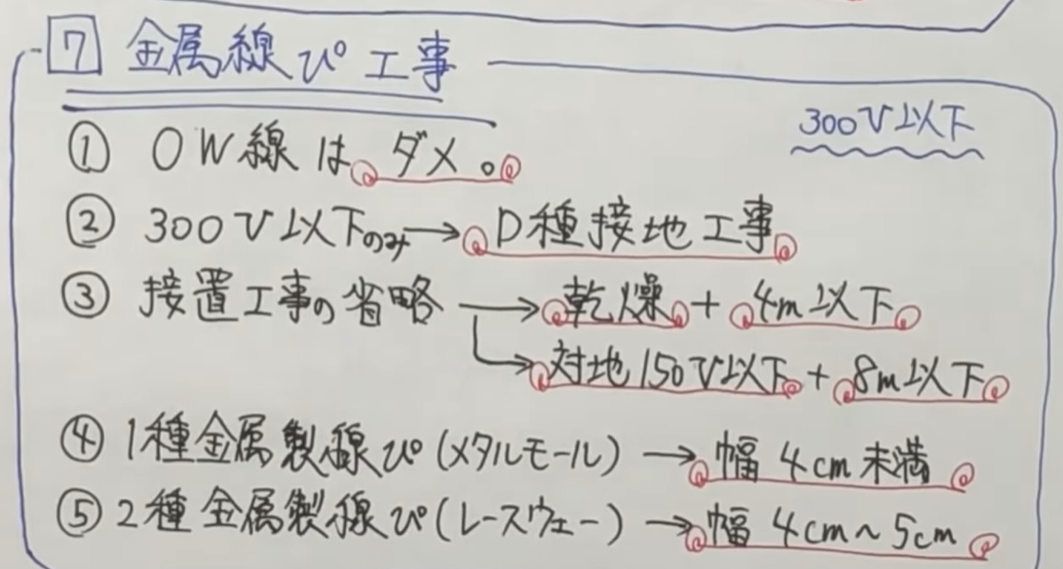 7 金属線ぴ工事
300V以下
① OW線はダメ。
② 300V以下のみ→D種接地工事
③ 接置工事の省略→乾燥+4m以下
→対地150V以下+8m以下
④ 1種金属製線ぴ(メタルモール)→幅4cm未満
⑤ 2種金属製線ぴ(レースウェー)→幅4cm~5cm